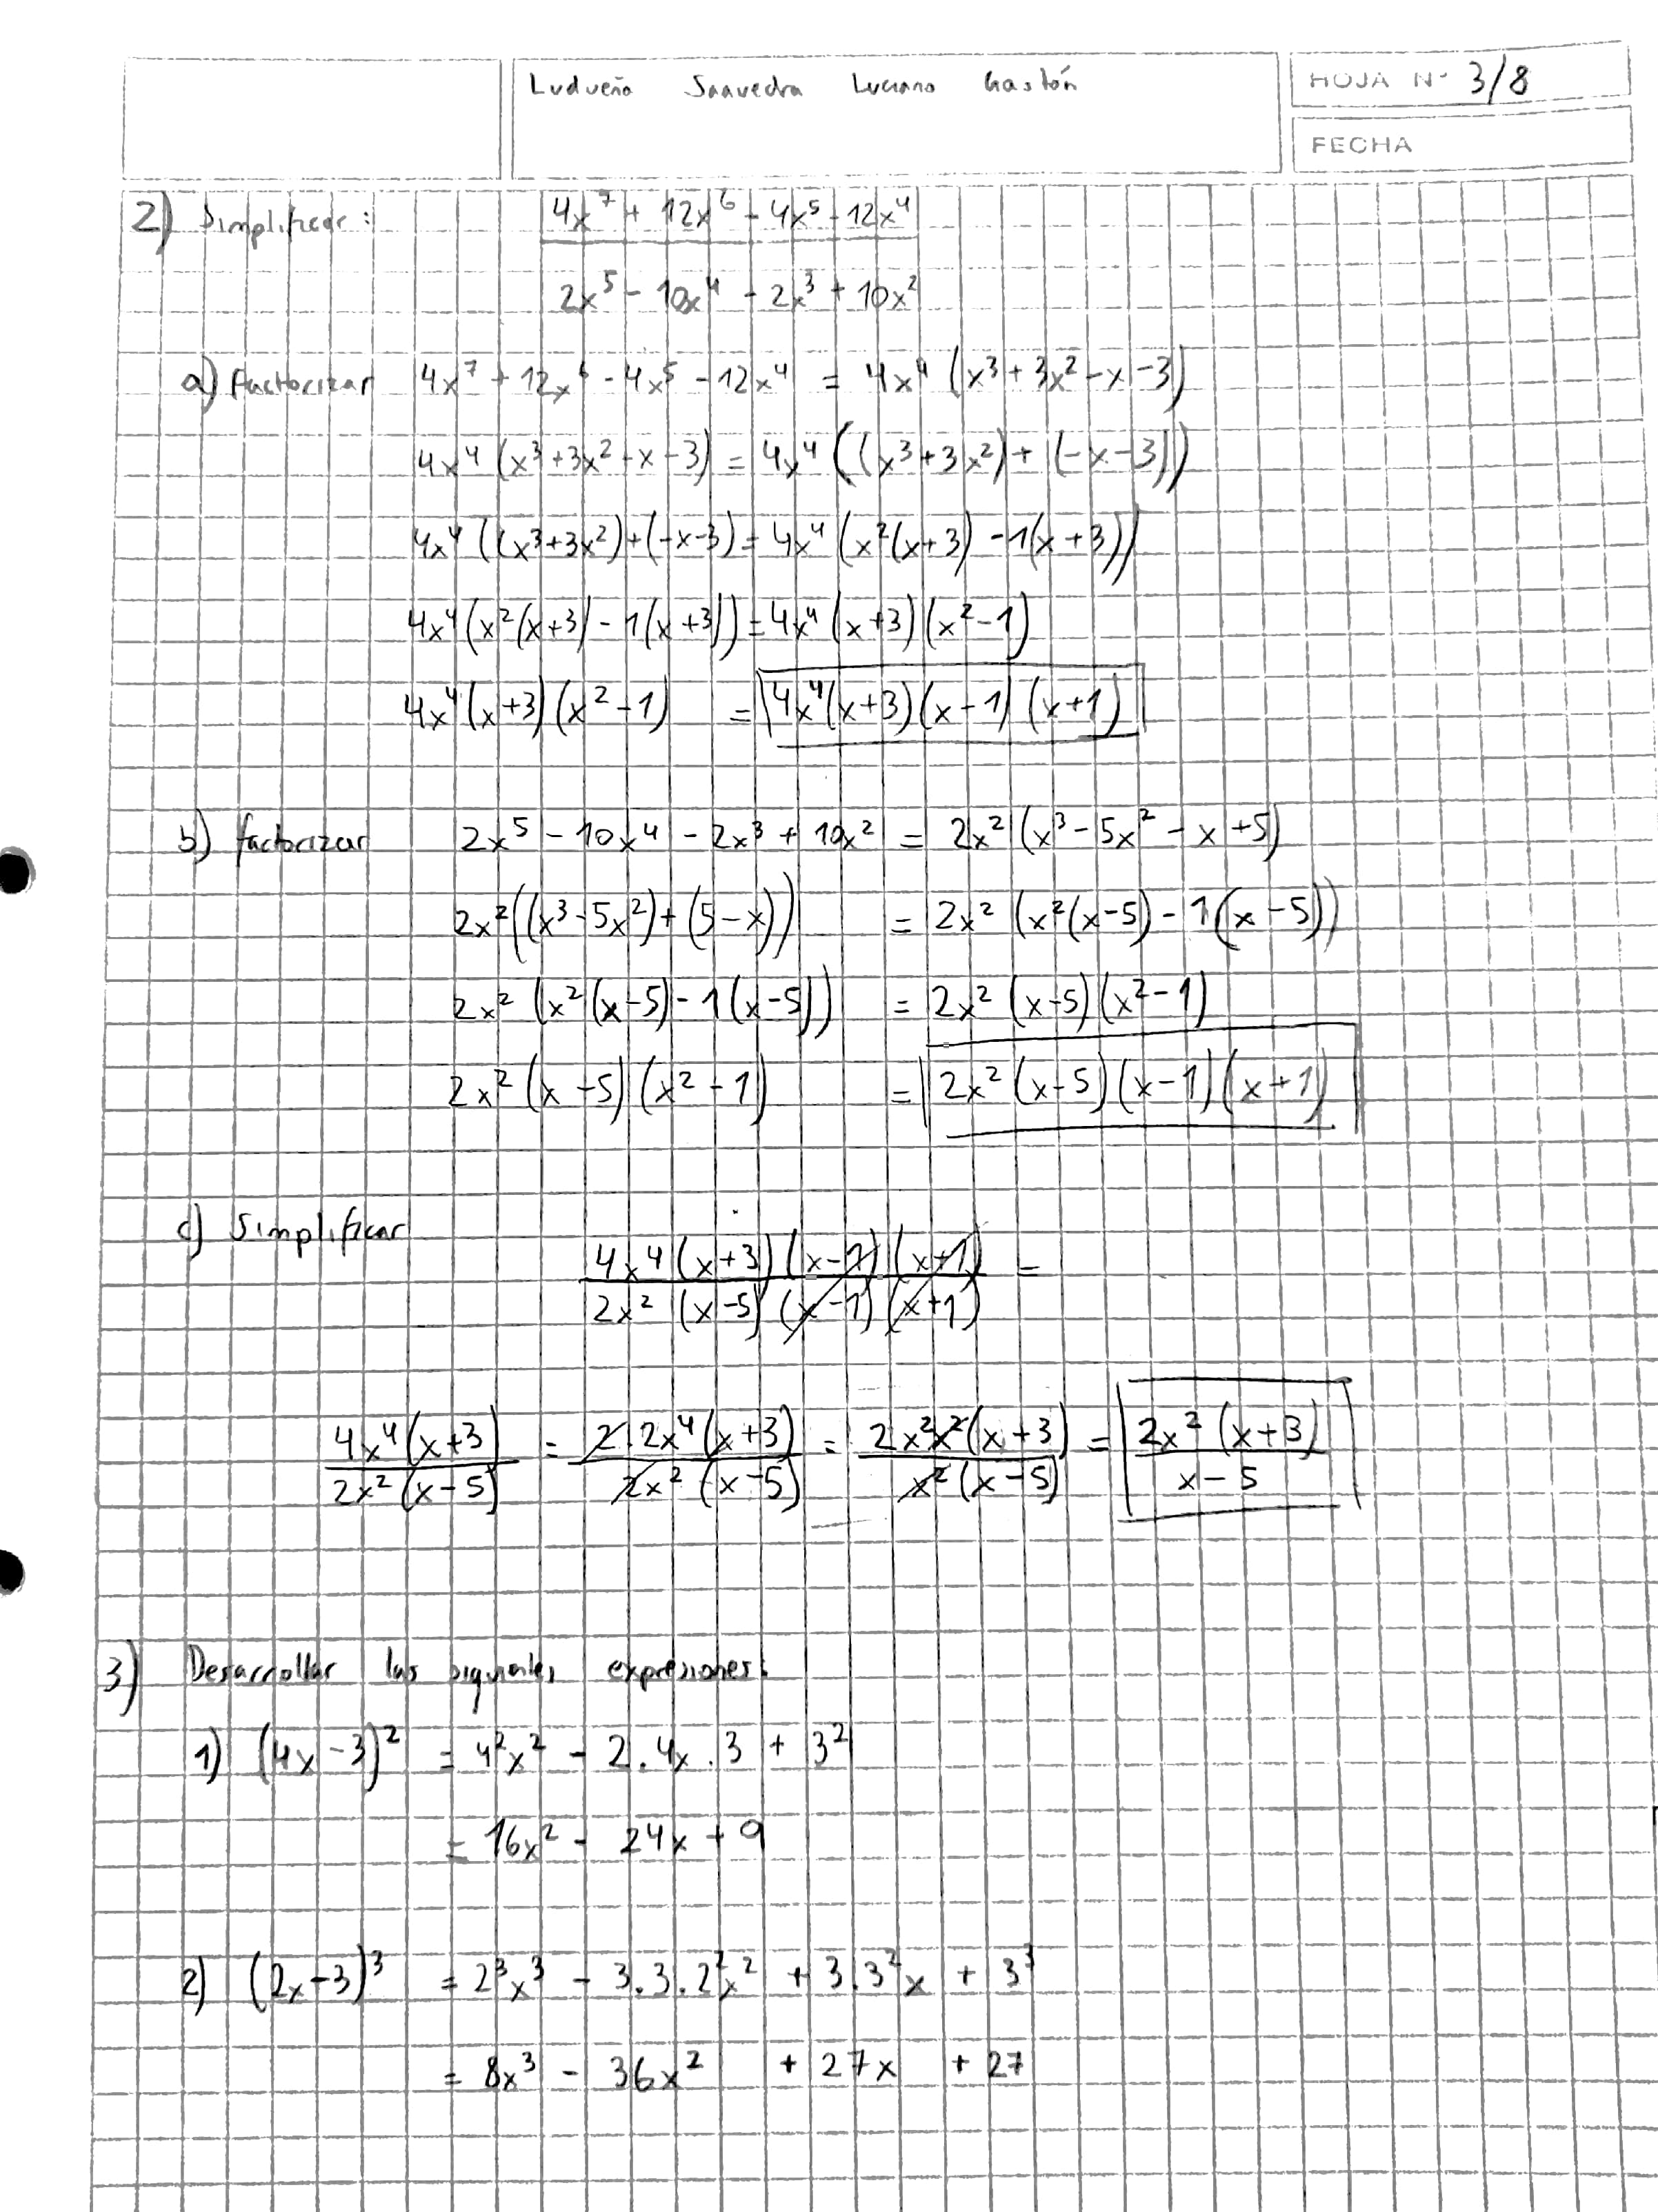 Ludueña Saavedra Luciano Gastón
HOJA Nº 3/8
FECHA
2) Simplificar: (4x⁷ + 12x⁶ - 4x⁵ - 12x⁴) / (2x⁵ - 10x⁴ - 2x³ + 10x²)
a) factorizar 4x⁷ + 12x⁶ - 4x⁵ - 12x⁴ = 4x⁴ (x³ + 3x² - x - 3)
4x⁴ (x³ + 3x² - x - 3) = 4x⁴ ((x³ + 3x²) + (-x - 3))
4x⁴ ((x³ + 3x²) + (-x - 3) = 4x⁴ (x² (x + 3) - 1(x + 3))
4x⁴ (x² (x + 3) - 1(x + 3)) = 4x⁴ (x + 3) (x² - 1)
4x⁴ (x + 3) (x² - 1) = 4x⁴ (x + 3) (x - 1) (x + 1)
b) factorizar 2x⁵ - 10x⁴ - 2x³ + 10x² = 2x² (x³ - 5x² - x + 5)
2x² ((x³ - 5x²) + (5 - x)) = 2x² (x² (x - 5) - 1 (x - 5))
2x² (x² (x - 5) - 1 (x - 5)) = 2x² (x - 5) (x² - 1)
2x² (x - 5) (x² - 1) = 2x² (x - 5) (x - 1) (x + 1)
c) Simplificar
4x⁴ (x + 3) (x - 1) (x + 1) / 2x² (x - 5) (x - 1) (x + 1) =
4x⁴ (x + 3) / 2x² (x - 5) = 2.2x⁴ (x + 3) / 2x² (x - 5) = 2x²x² (x + 3) / x² (x - 5) = 2x² (x + 3) / x - 5
3) Desarrollar las siguientes expresiones:
1) (4x - 3)² = 4²x² - 2.4x.3 + 3²
= 16x² - 24x + 9
2) (2x - 3)³ = 2³x³ - 3.3.2²x² + 3.3²x + 3³
= 8x³ - 36x² + 27x + 27